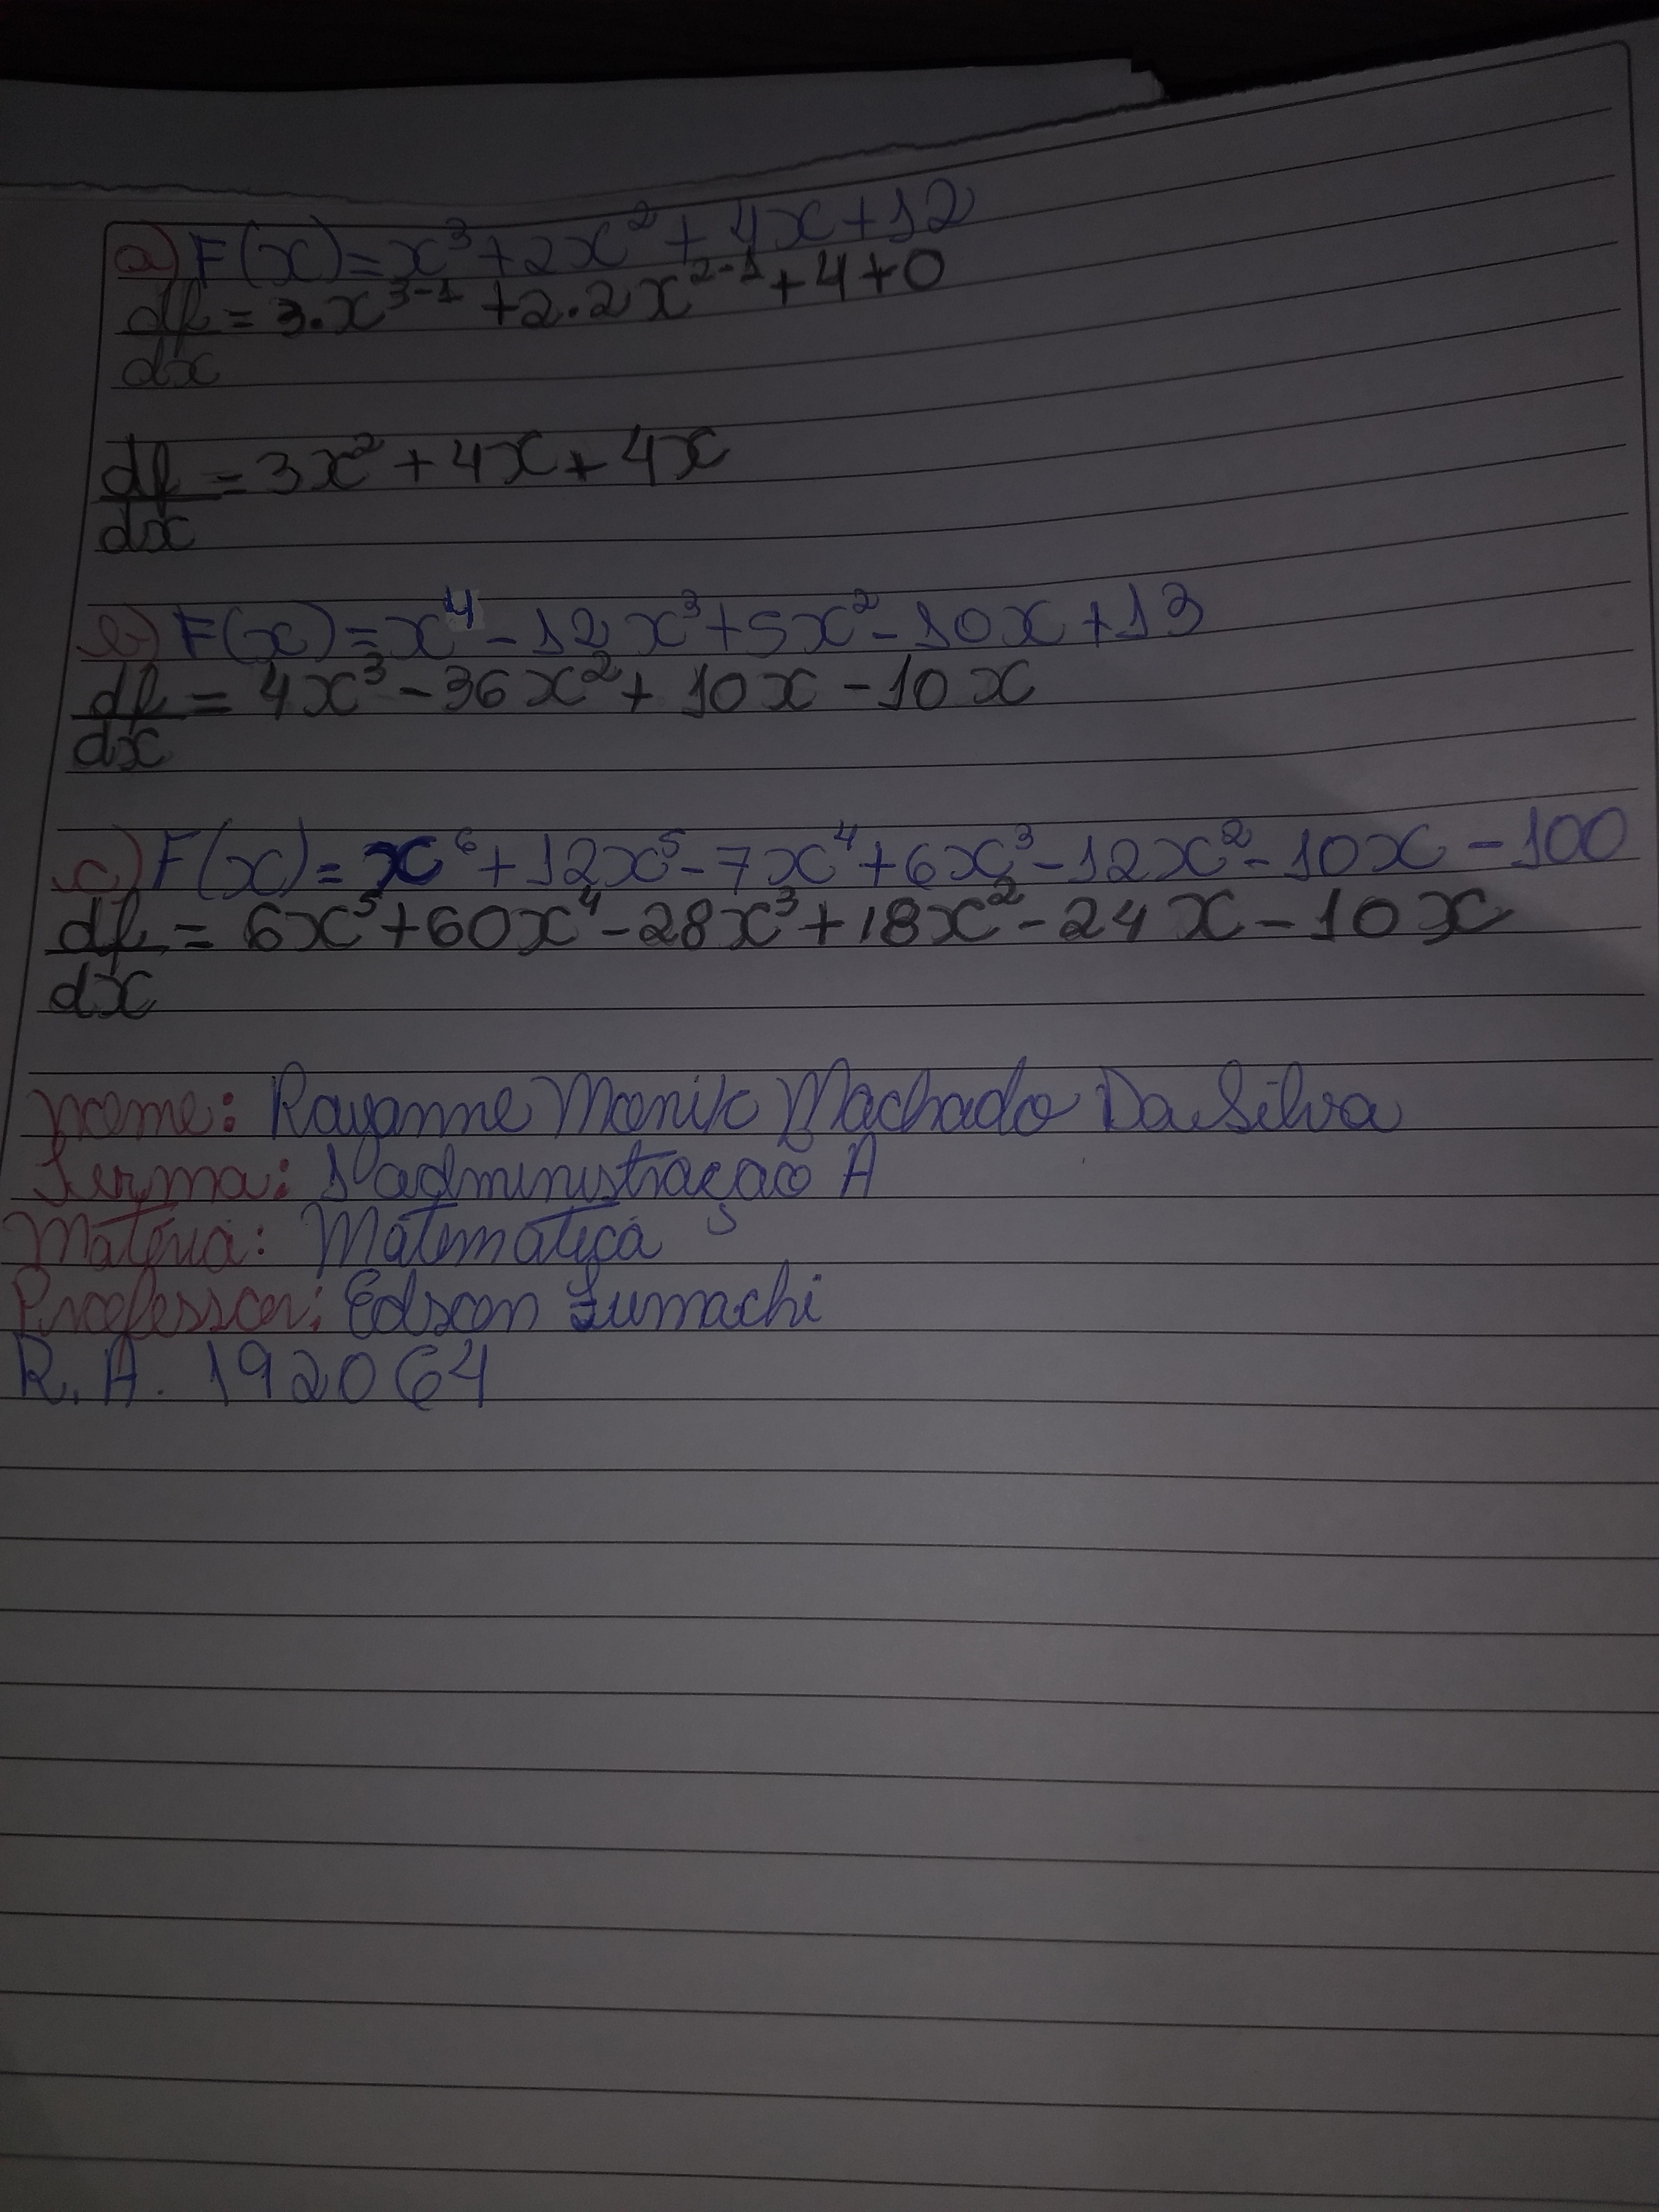 a) F(x) = x³ + 2x² + 4x + 12
df/dx = 3.x³⁻¹ + 2.2x²⁻¹ + 4 + 0
df/dx = 3x² + 4x + 4x
b) F(x) = x⁴ - 12x³ + 5x² - 10x + 13
df/dx = 4x³ - 36x² + 10x - 10x
c) F(x) = x⁶ + 12x⁵ - 7x⁴ + 6x³ - 12x² - 10x - 100
df/dx = 6x⁵ + 60x⁴ - 28x³ + 18x² - 24x - 10x
Nome: Rayanne Monik Machado Da Silva
Turma: 1º administração A
Matéria: Matemática
Professor: Edson Fumachi
R.A. 192064